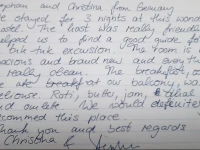 ephan and Christina from Germany
We stayed for 3 nights at this wonder
hostel. The host was really friendly
helped us to find a good guide for
Tuk-tuk excursion. The room is
spacious and brand new and everything
really clean. The breakfast
at our balcony was
delicious. Roti, butter, jam,
and omlete. We would definitely
recommend this place.
Thank you and best regards
Christina &